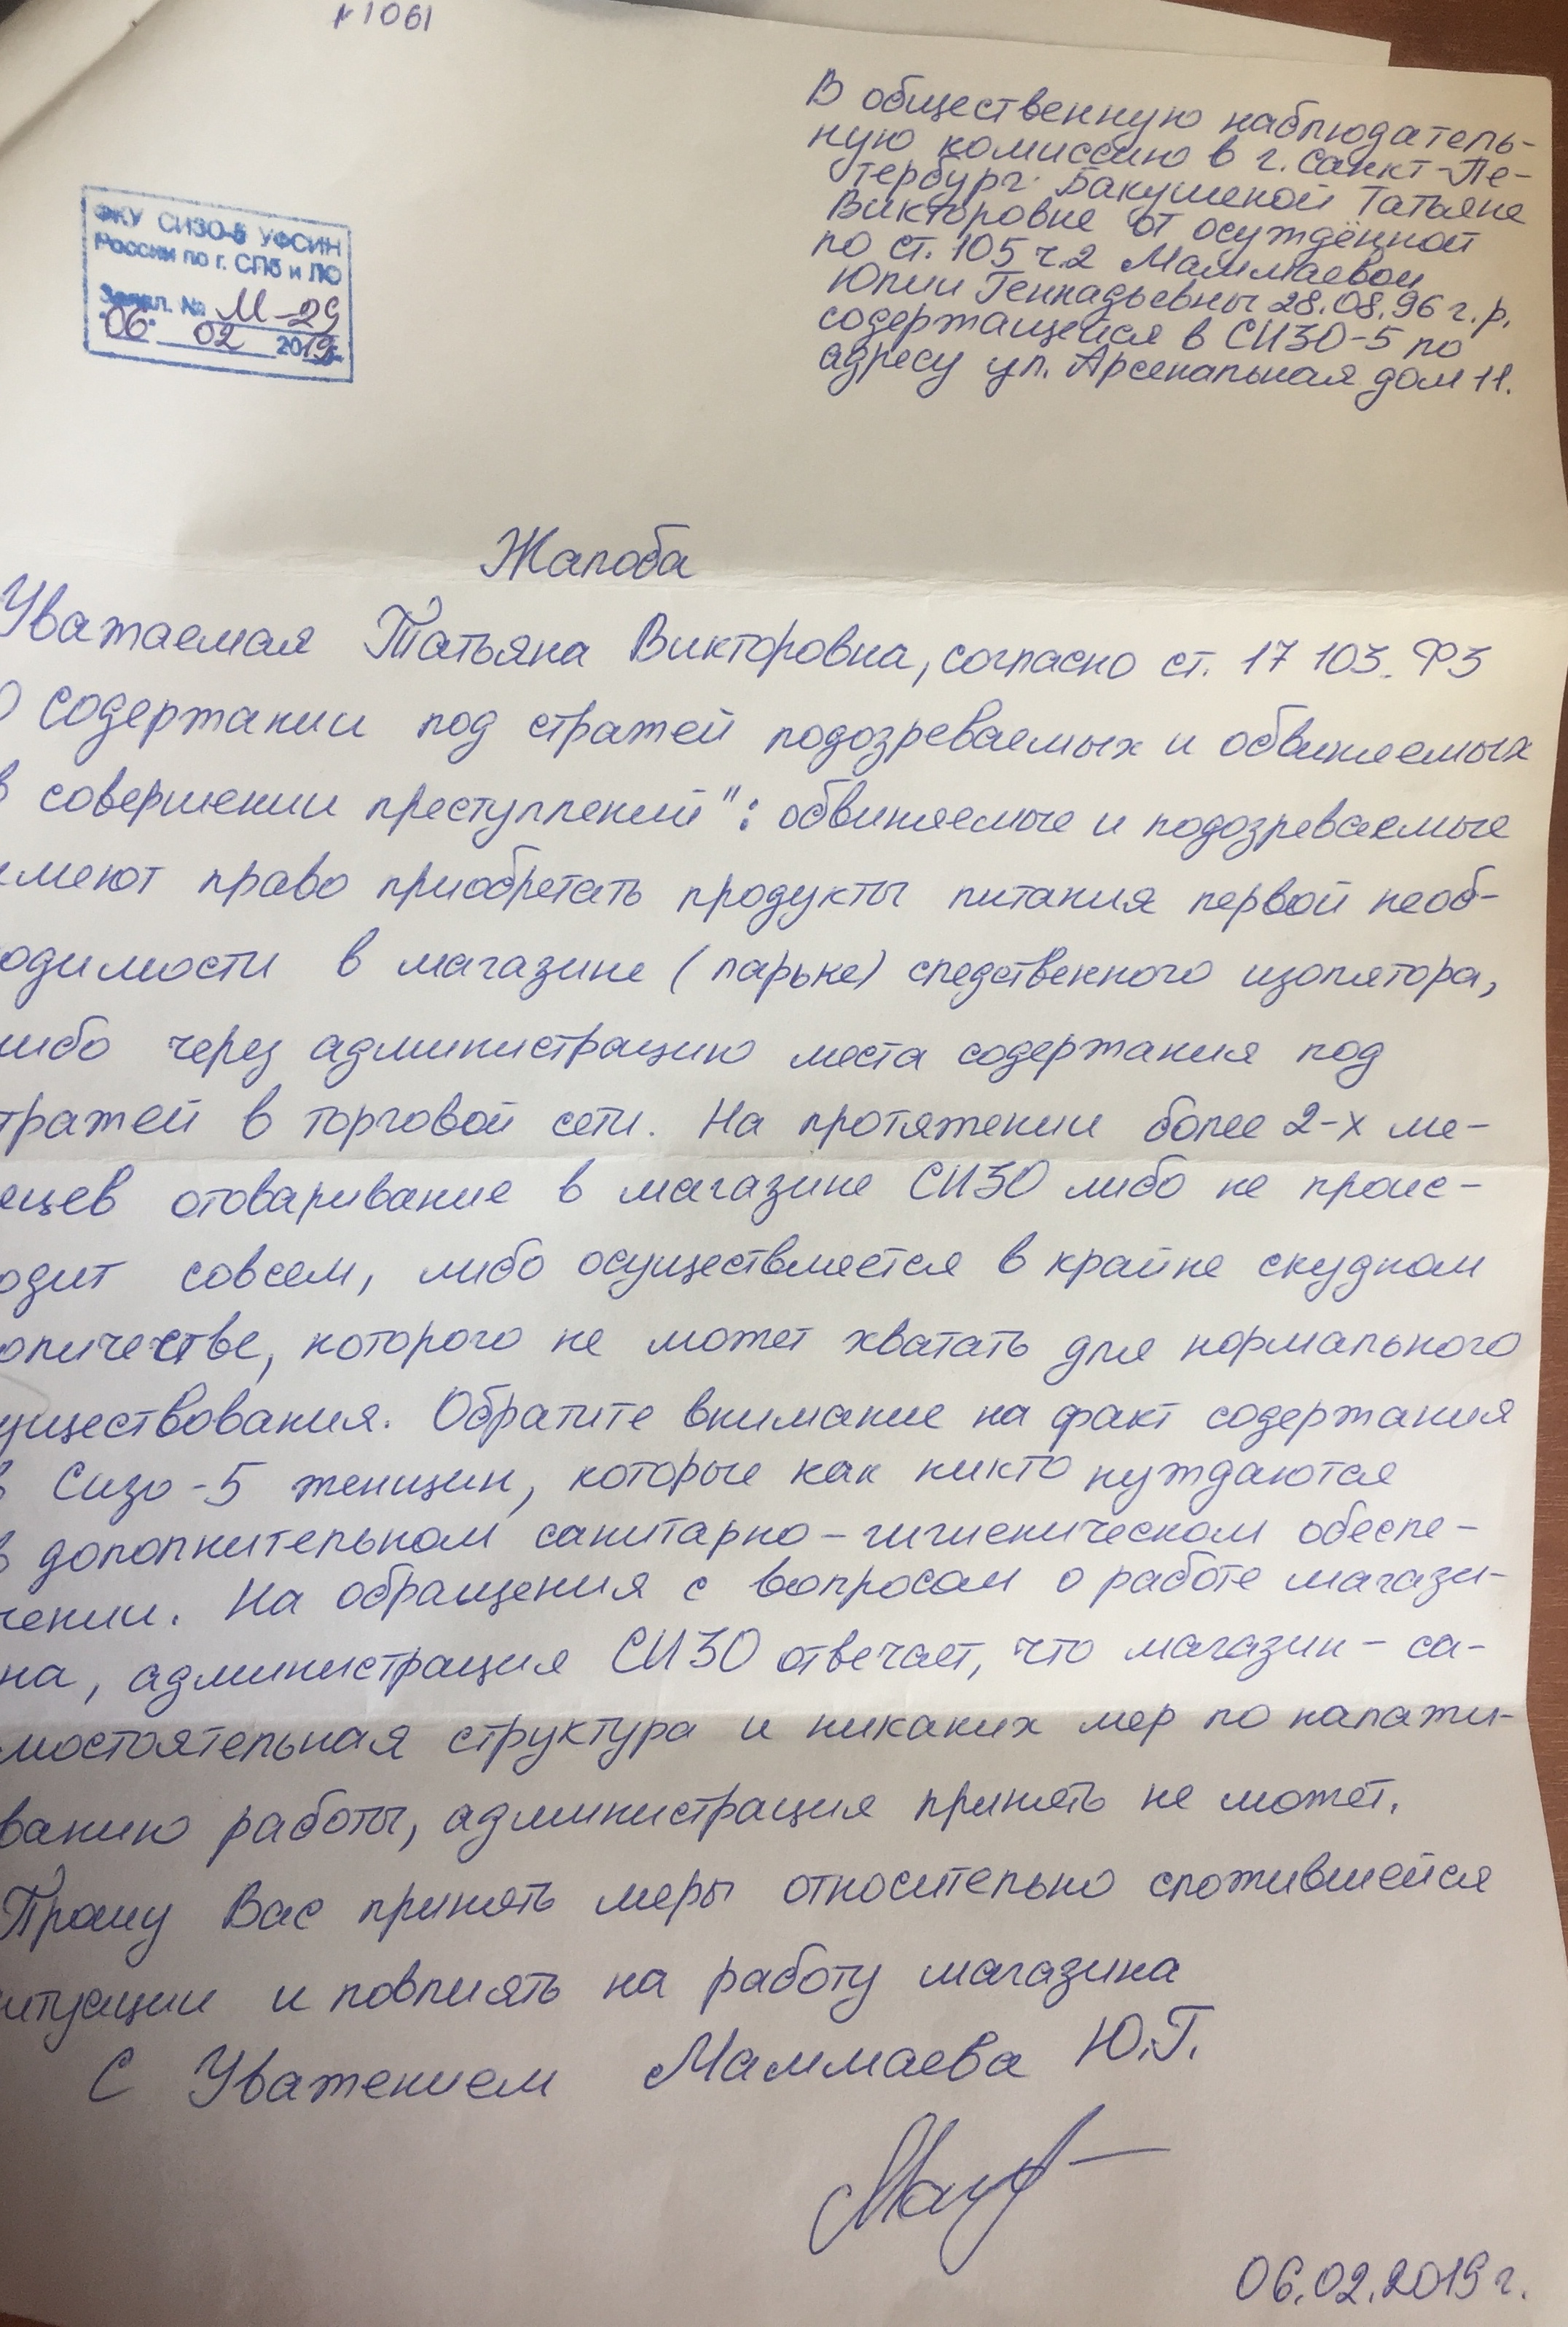 №1061
В общественную наблюдатель-
ную комиссию в г. Санкт-Пе-
тербург. Бакушеной Татьяне
Викторовне от осуждённой
по ст. 105 ч.2 Маммаевой
Юлии Геннадьевны 28.08.96 г.р.
содержащейся в СИЗО-5 по
адресу ул. Арсенальная дом 11.
ФКУ СИЗО-5 УФСИН
России по г. СПб и ЛО
№ М-29
06. 02 2019
Жалоба
Уважаемая Татьяна Викторовна, согласно ст. 17 103. ФЗ
О содержании под стражей подозреваемых и обвиняемых
в совершении преступлений": обвиняемые и подозреваемые
имеют право приобретать продукты питания первой необ-
одимости в магазине (ларьке) следственного изолятора,
либо через администрацию места содержания под
тражей в торговой сети. На протяжении более 2-х ме-
яцев отоваривание в магазине СИЗО либо не проис-
одит совсем, либо осуществляется в крайне скудном
оличестве, которого не может хватать для нормального
уществования. Обратите внимание на факт содержания
в Сизо-5 женщин, которые как никто нуждаются
в дополнительном санитарно-гигиеническом обеспе-
чении. На обращения с вопросом о работе магази-
на, администрация СИЗО отвечает, что магазин - са-
мостоятельная структура и никаких мер по налажи-
ванию работы, администрация принять не может.
Прошу Вас принять меры относительно сложившейся
итуации и повлиять на работу магазина
С Уважением Маммаева Ю.Г.
06.02.2019 г.